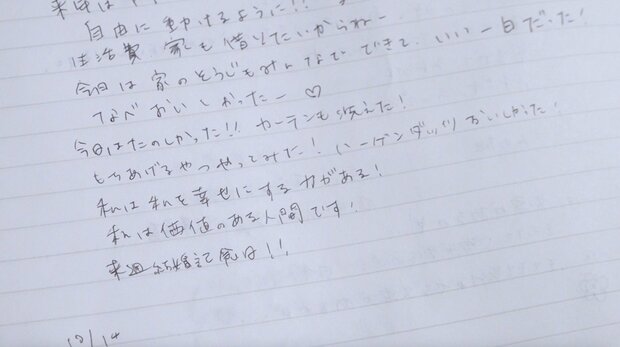 自由に動けるように!!
生活費 家も借りたいからねー
今日は家のそうじもみんなでできて、いい一日だった!
なべおいしかったー♡
今日はたのしかった!! カーテンも洗えた!
もちあげるやつやってみた! ハーゲンダッツおいしかった!
私は私を幸せにする力がある!
私は価値のある人間です!
来週結婚記念日!!
12/14